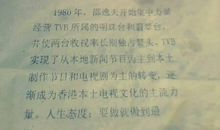 1980年，邵逸夫开始集中力量
经营TVB所属的明珠台和翡翠台，
并使两台收视率长期独占鳌头。TVB
实现了从本地新闻节目为主到本土
制作节目和电视剧为主的转变，逐
渐成为香港本土电视文化的主流力
量。人生态度：要做就做到最